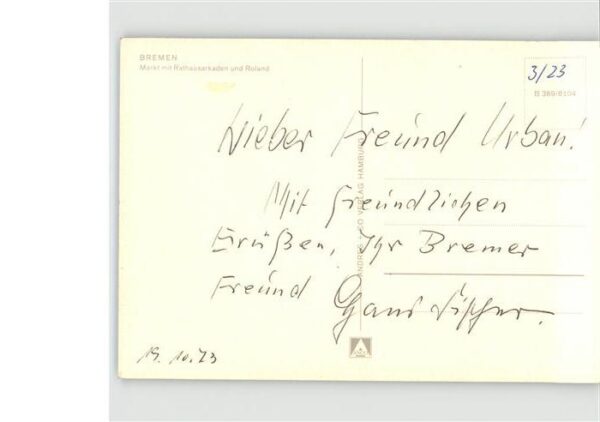 BREMEN
Markt mit Rathausarkaden und Roland
3/23
B 389/8104
Lieber Freund Urban!
Mit freundlichen
Grüßen, Ihr Bremer
Freund Hans Fischer.
19. 10. 73
VERLAG HAMBURG